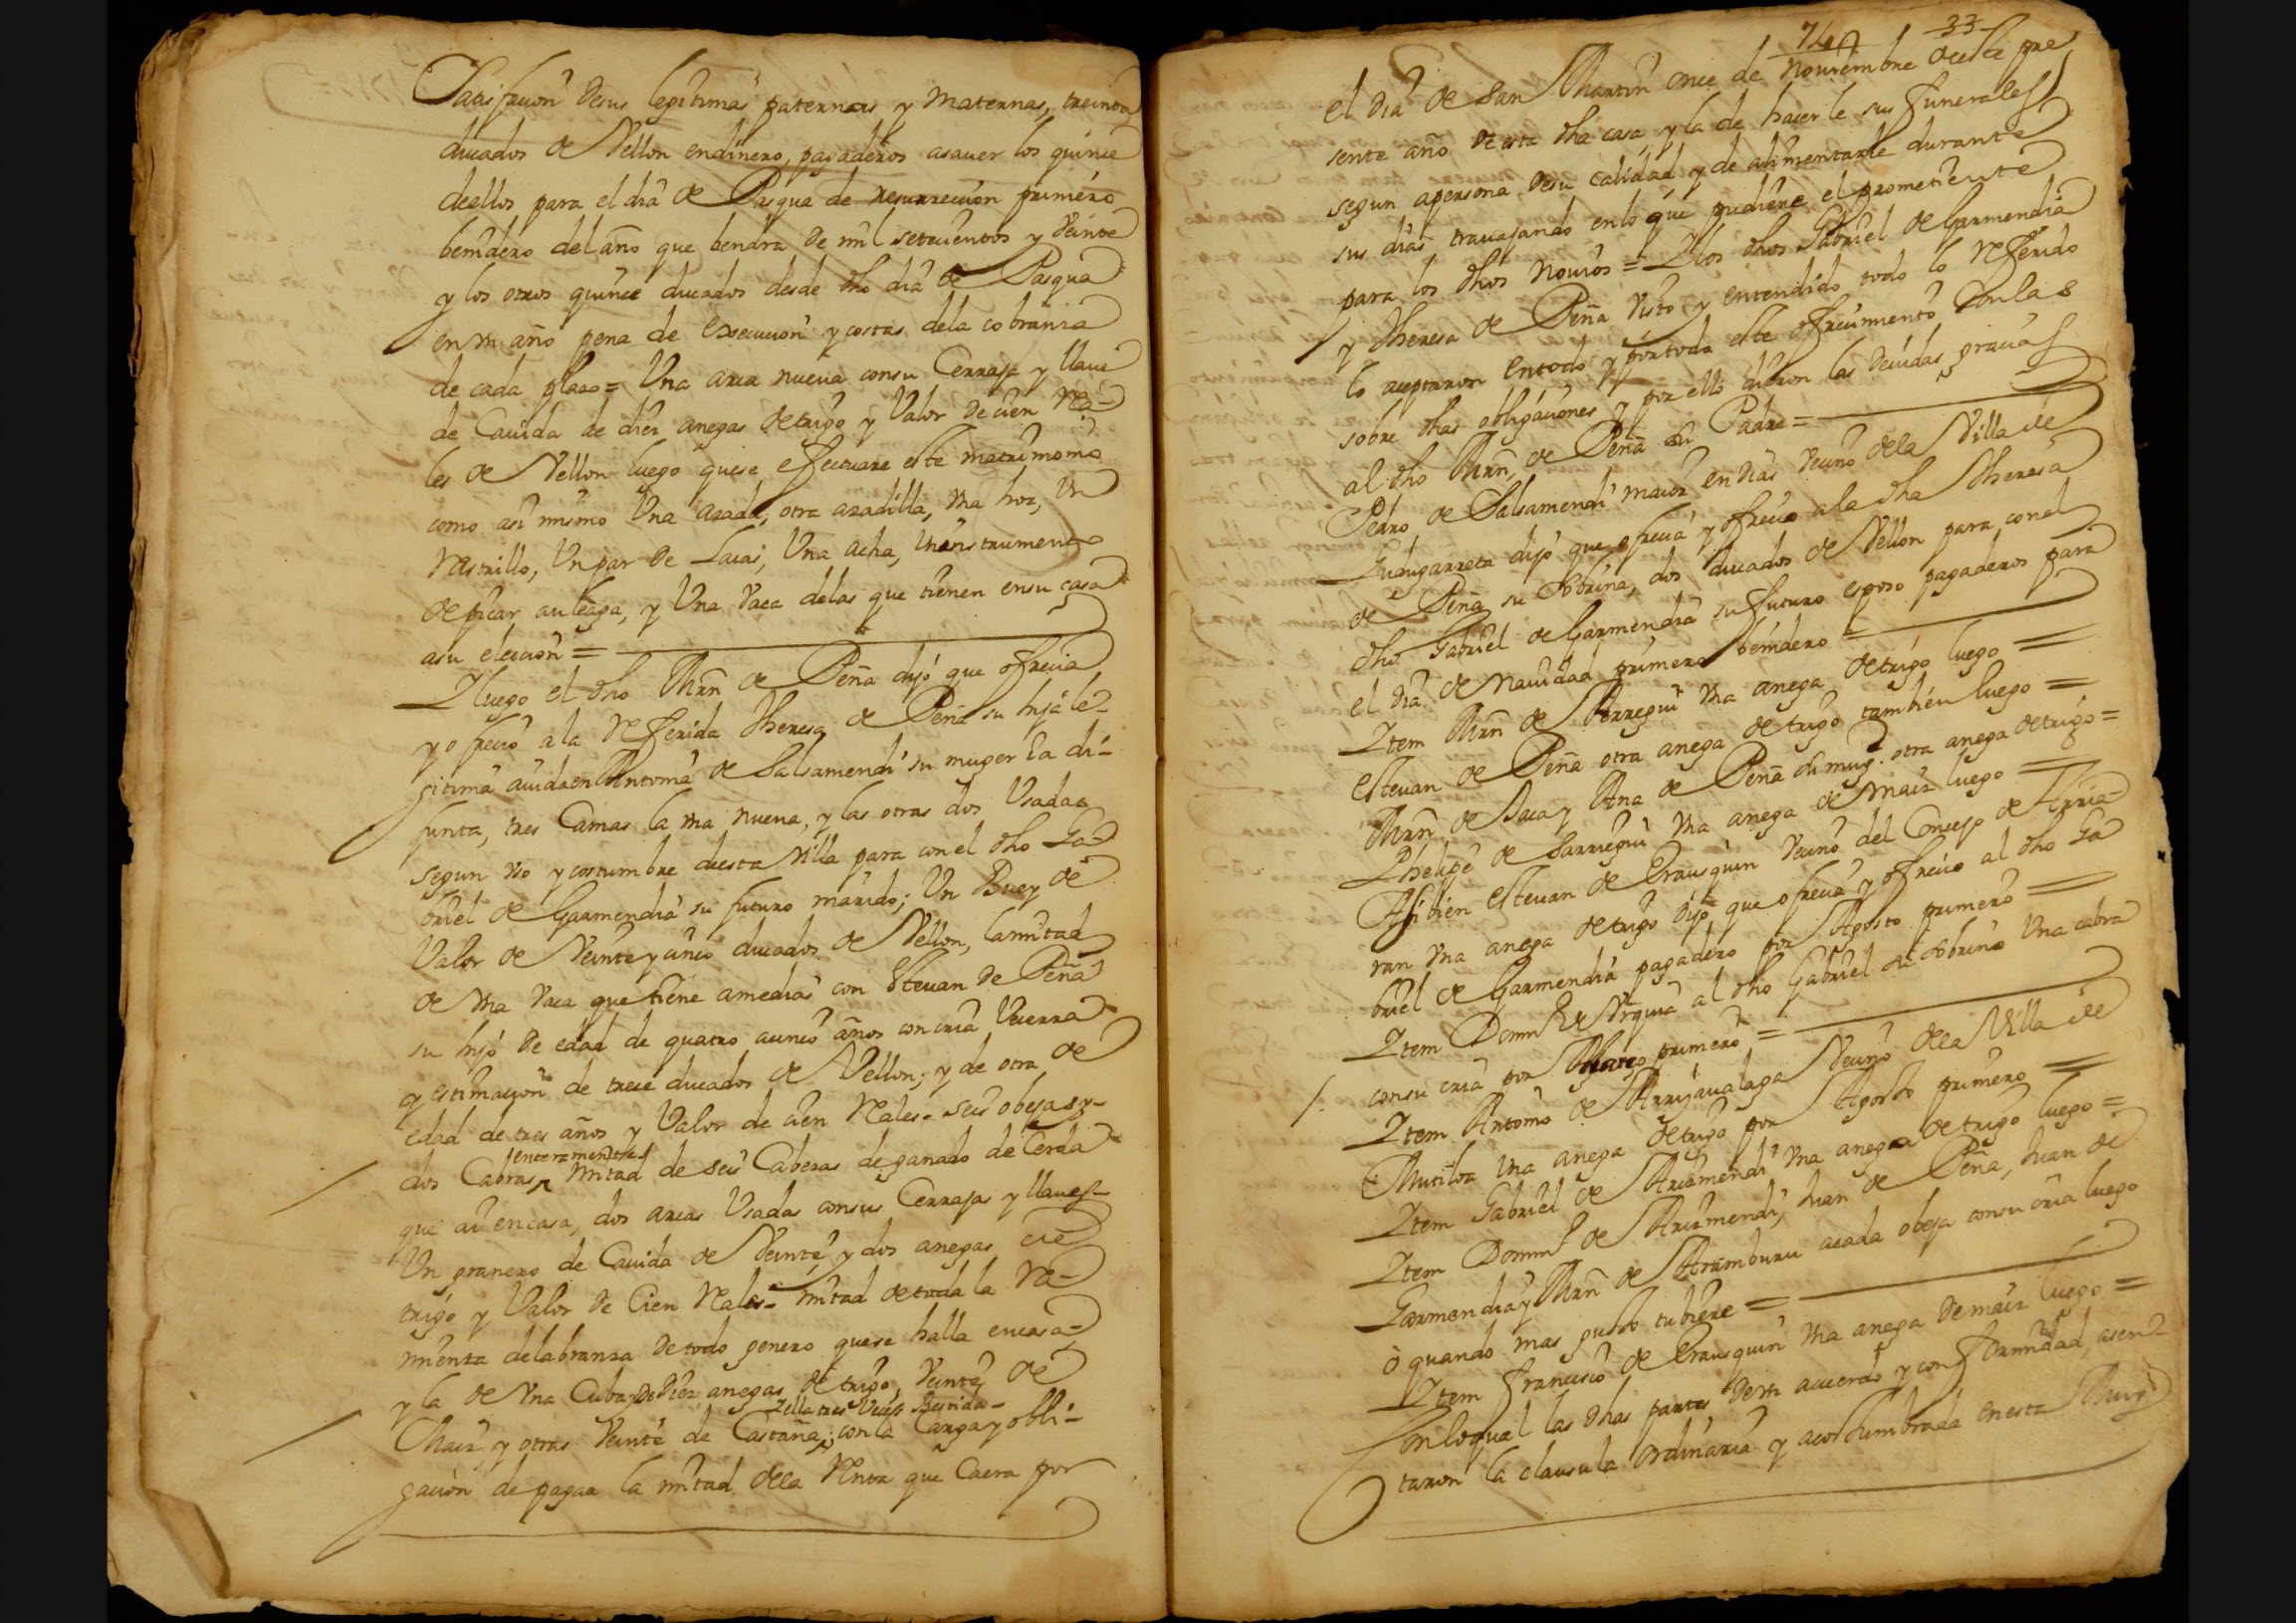 Satisfacion desus legitimas paternas y maternas, treinta
ducados de Vellon endinero, pagaderos asauer los quince
deellos para el dia de Pasqua de resurreccion primero
benidero del año que bendra de mil setecientos y veinte
y los otros quince ducados desde dho dia de Pasqua
en vn año pena de execucion y costas dela cobranza
de cada plazo = Una arca nueva consu Cerraja y llaue
de Cauida de diez anegas de trigo y Valor de cien Rea-
les de Vellon luego quese efectuare este matrimonio
como asi mismo Una azada, otra azadilla, vna hoz, vn
Rastrillo, Un par de Laias, Una acha, Un instrumento
de picar auleaga, y Una vaca delas que tienen ensu casa
asu eleccion =
Y luego el dho Mrn de Peña dijó que ofrecia
y ofrecio a la Referida Theresa de Peña su hija le-
gitima auida en Antonia de Salsamendi su muger la di-
funta, tres Camas la vna nueva, y las otras dos Usadas
segun vso y costumbre de esta Villa para con el dho Ga-
briel de Garmendia su futuro marido; Un Buey de
Valor de Veinte y cinco ducados de Vellon, la mitad
de vna vaca que tiene amedias con Esteuan de Peña
su hijo de edad de quatro acinco años con cria Vecerra
y estimacion de trece ducados de Vellon; y de otra de
edad de tres años y Valor de cien Reales = seis obejas y
enteramente
dos Cabras, mitad de seis Cabezas de ganado de Cerda
que ai en casa, dos arcas Usadas consus Cerrajas y llaues
Un granero de Cauida de Veinte y dos anegas de
trigo y Valor de Cien Reales = mitad de toda la Ra-
mienta delabranza de todo genero quese halla encasa
y la de vna Cuba, de diez anegas de trigo, veinte de
Maiz, y otras veinte de Castaña; con la Carga y obli-
gacion de pagar la mitad dela Renta que Caera por
74 33
el dia de San Martin once de Nouiembre deeste pre
sente año de esta dha casa, y la de hacerle sus funerales
segun apersona desu calidad y de alimentarle durante
sus dias trauajando enlo que pudiere el prometiente
para los dhos nouios = Y los dhos Gabriel de Garmendia
y Theresa de Peña visto y entendido todo lo Referido
lo aceptaron entodo y portodo este ofrecimiento Conlas
sobre dhas obligaciones y por ello dieron las deuidas gracias
al dho Mrn de Peña su Padre =
Pedro de Salsamendi maior en dias vecino dela Villa de
Zugarreta dijo que ofrecia y ofrecio ala dha Theresa
de Peña su sobrina, dos ducados de Vellon para conel
dho Gabriel de Garmendia su futuro esposo pagaderos para
el dia de nauidad primero benidero =
Ytem Mrn de Berregui vna anega de trigo luego =
Esteuan de Peña otra anega de trigo tambien luego =
Mrn de Saca y Ana de Peña su mug.r otra anega de trigo =
Phelipe de Sarregui vna anega de maiz luego =
Asi bien Esteuan de Erausquin vecino del Concejo de
ran vna anega de trigo dijo que ofrecia y ofrecio al dho Ga
briel de Garmendia pagadero por Agosto primero =
Ytem Domin.o de Vrquia al dho Gabriel su sobrino Una cabra
consu cria por Marzo primero =
Ytem Antonio de Vecino dela Villa de
Mutiloa vna anega de trigo por Agosto primero =
Ytem Gabriel de Arizmendi vna anega de trigo luego =
Ytem Domin.o de Arizmendi, Juan de Peña, Juan de
Garmendia y Mrn de Aramburu acada obeja consu cria luego
ò quando mas gusto tubiere =
Ytem Francisco de Erausquin vna anega de maiz luego =
Conloqual las dhas partes de vn acuerdo y conformidad, asen-
taron la clausula ordinaria y acostumbrada en esta